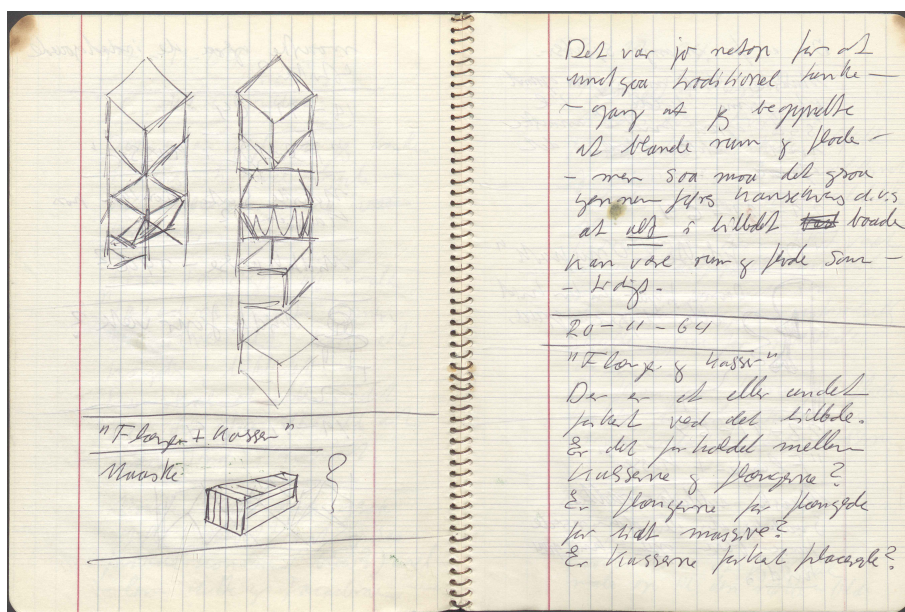 "Flænger + Kasser"
Maaske
Det var jo netop for at
undgaa traditionel tanke-
- gang at jeg begyndte
at blande rum og flade -
- men saa maa det graa
gennemføres d.v.s
at alt i billedet baade
kan være rum og flade sam-
- tidigt.
20-11-64
"Flænger og Kasser"
Der er et eller andet
forkert ved det billede.
Er det forholdet mellem
Kasserne og flængerne?
Er flængerne for flængede
for lidt massive?
Er Kasserne forkert placerede?